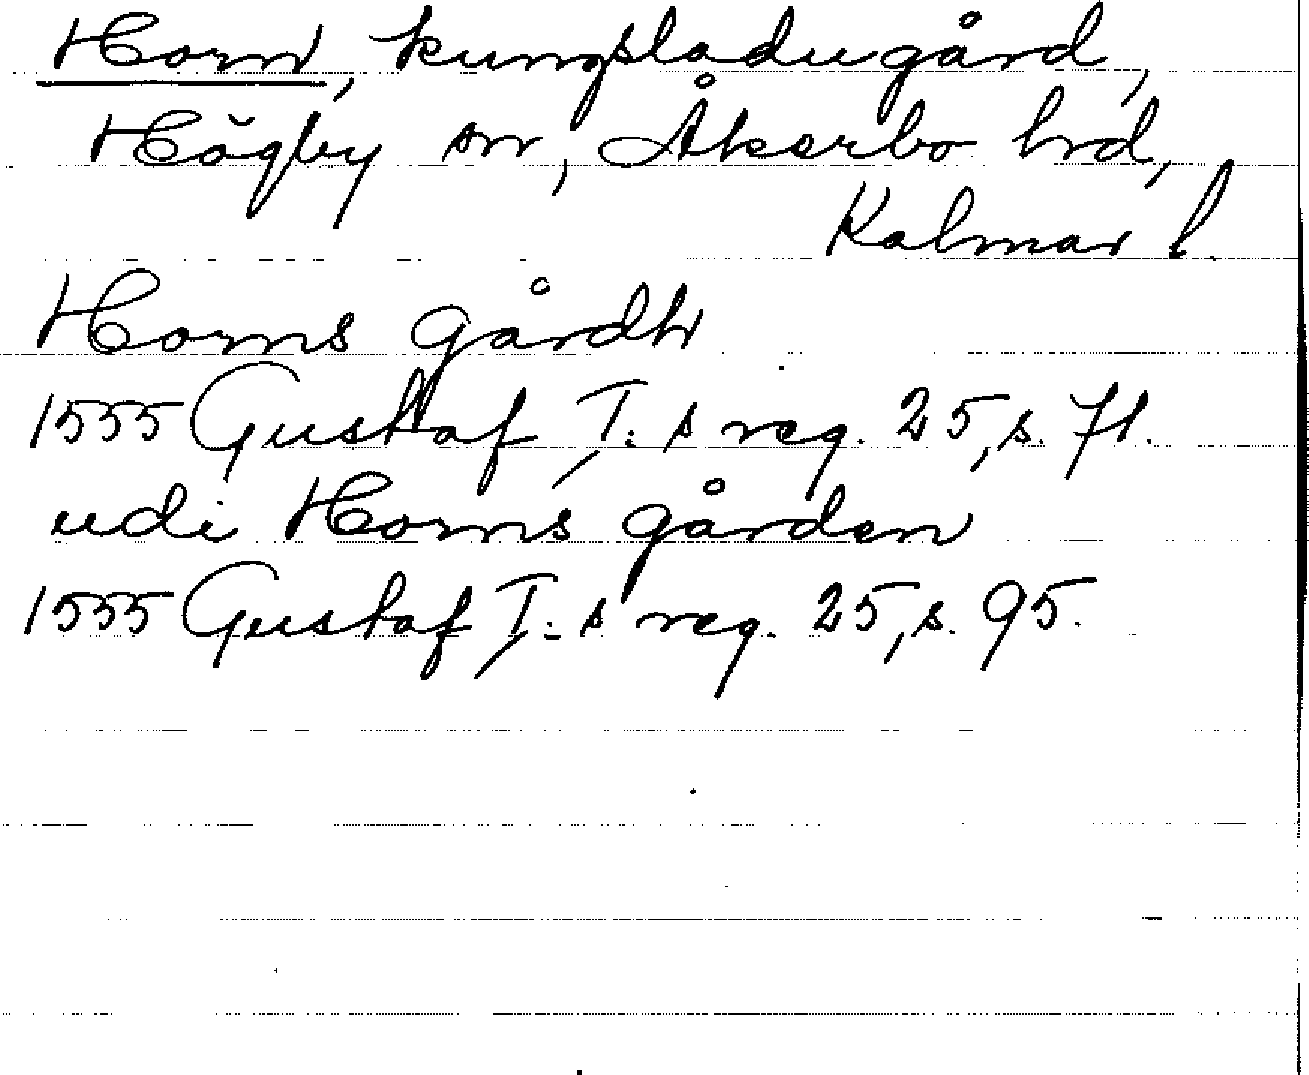 Horn, kungsladugård,
Högby sn, Åkerbo hrd,
Kalmar l.
Horns gårdh
1555 Gustaf I:s reg. 25, s. 71.
udi Horns gården
1555 Gustaf I:s reg. 25, s. 95.